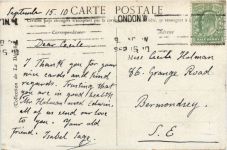 September 15. 10
CARTE POSTALE
LONDON W
Correspondance
Dear Cecile
I Thank you for your
nice cards and kind
regards. Trusting that
you are in good health
Ms Holman and Edwin.
all of us send our love
to you. Your old
friend. Isabel
Miss Cecile Holman
86. Grange Road
Bermondsey.
S. E